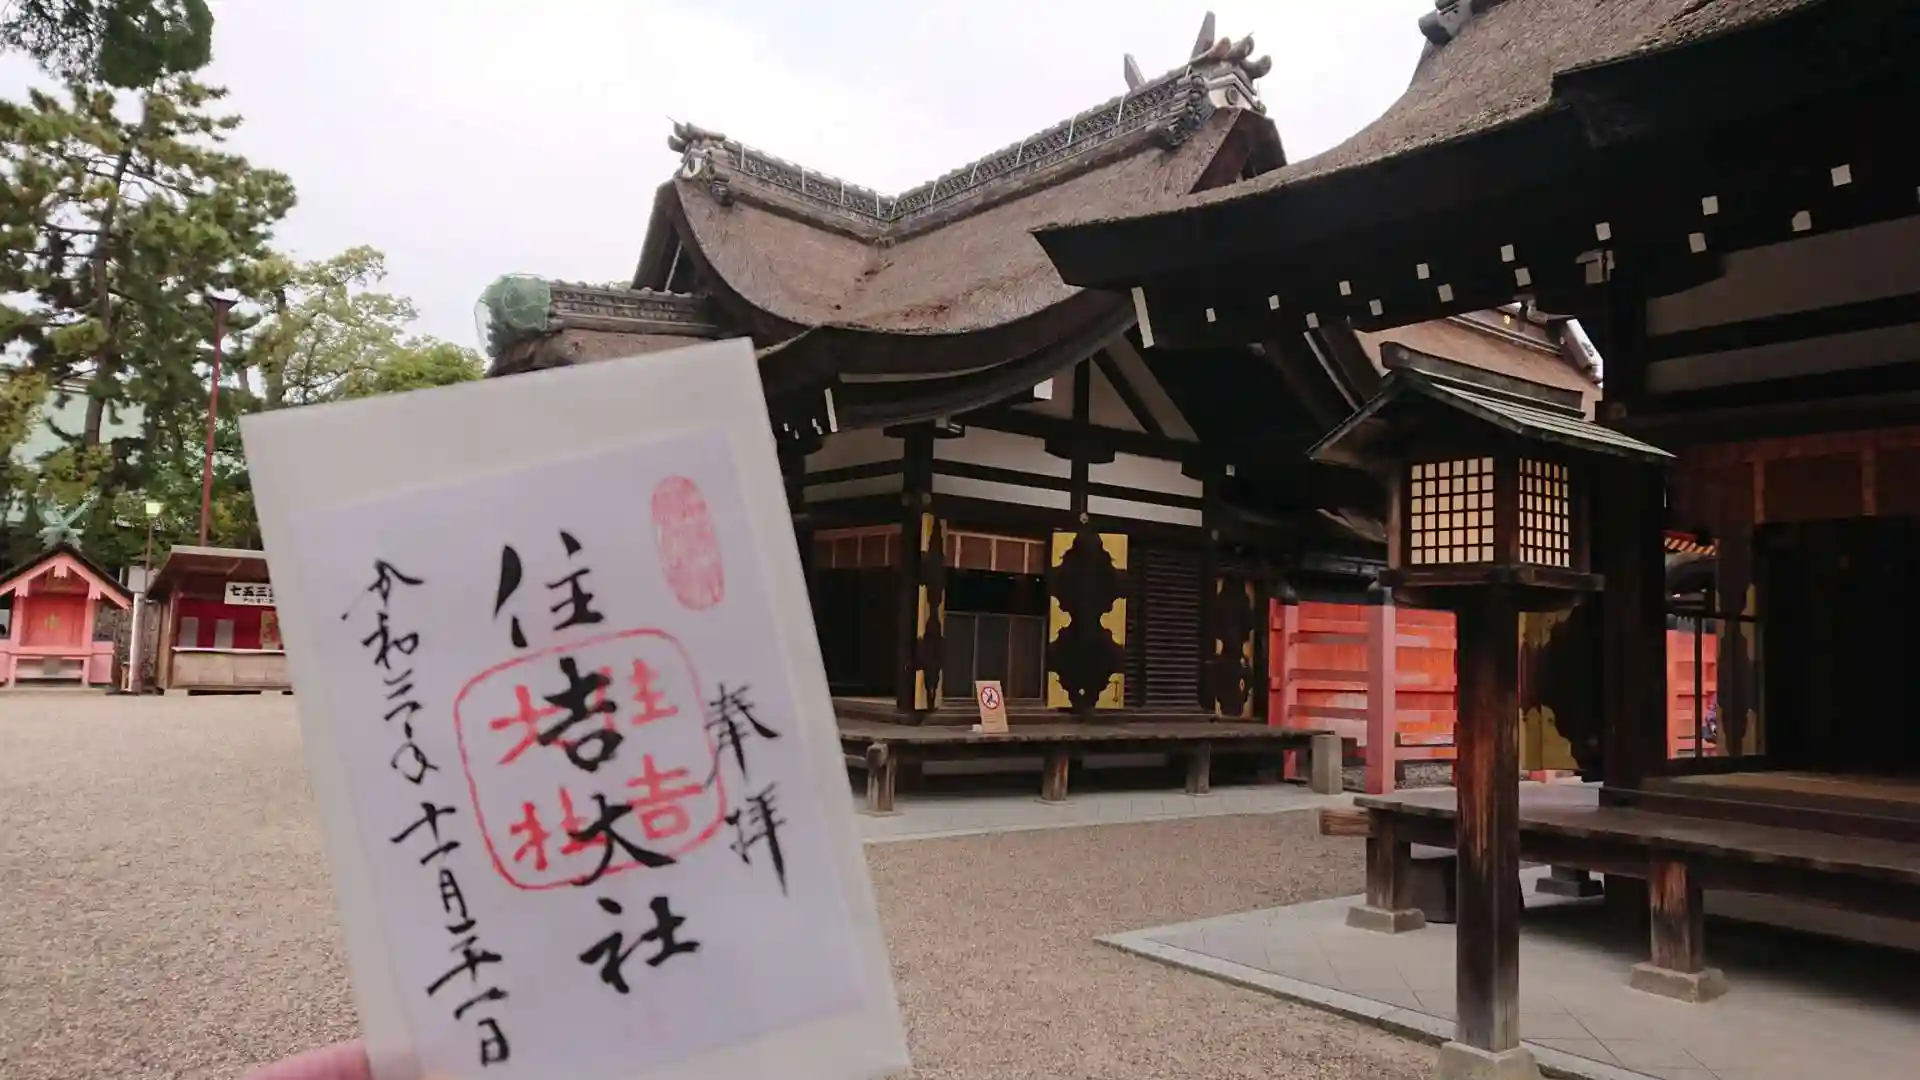 奉拝
住吉大社
住吉
大社
令和二年十一月二十一日
七五三